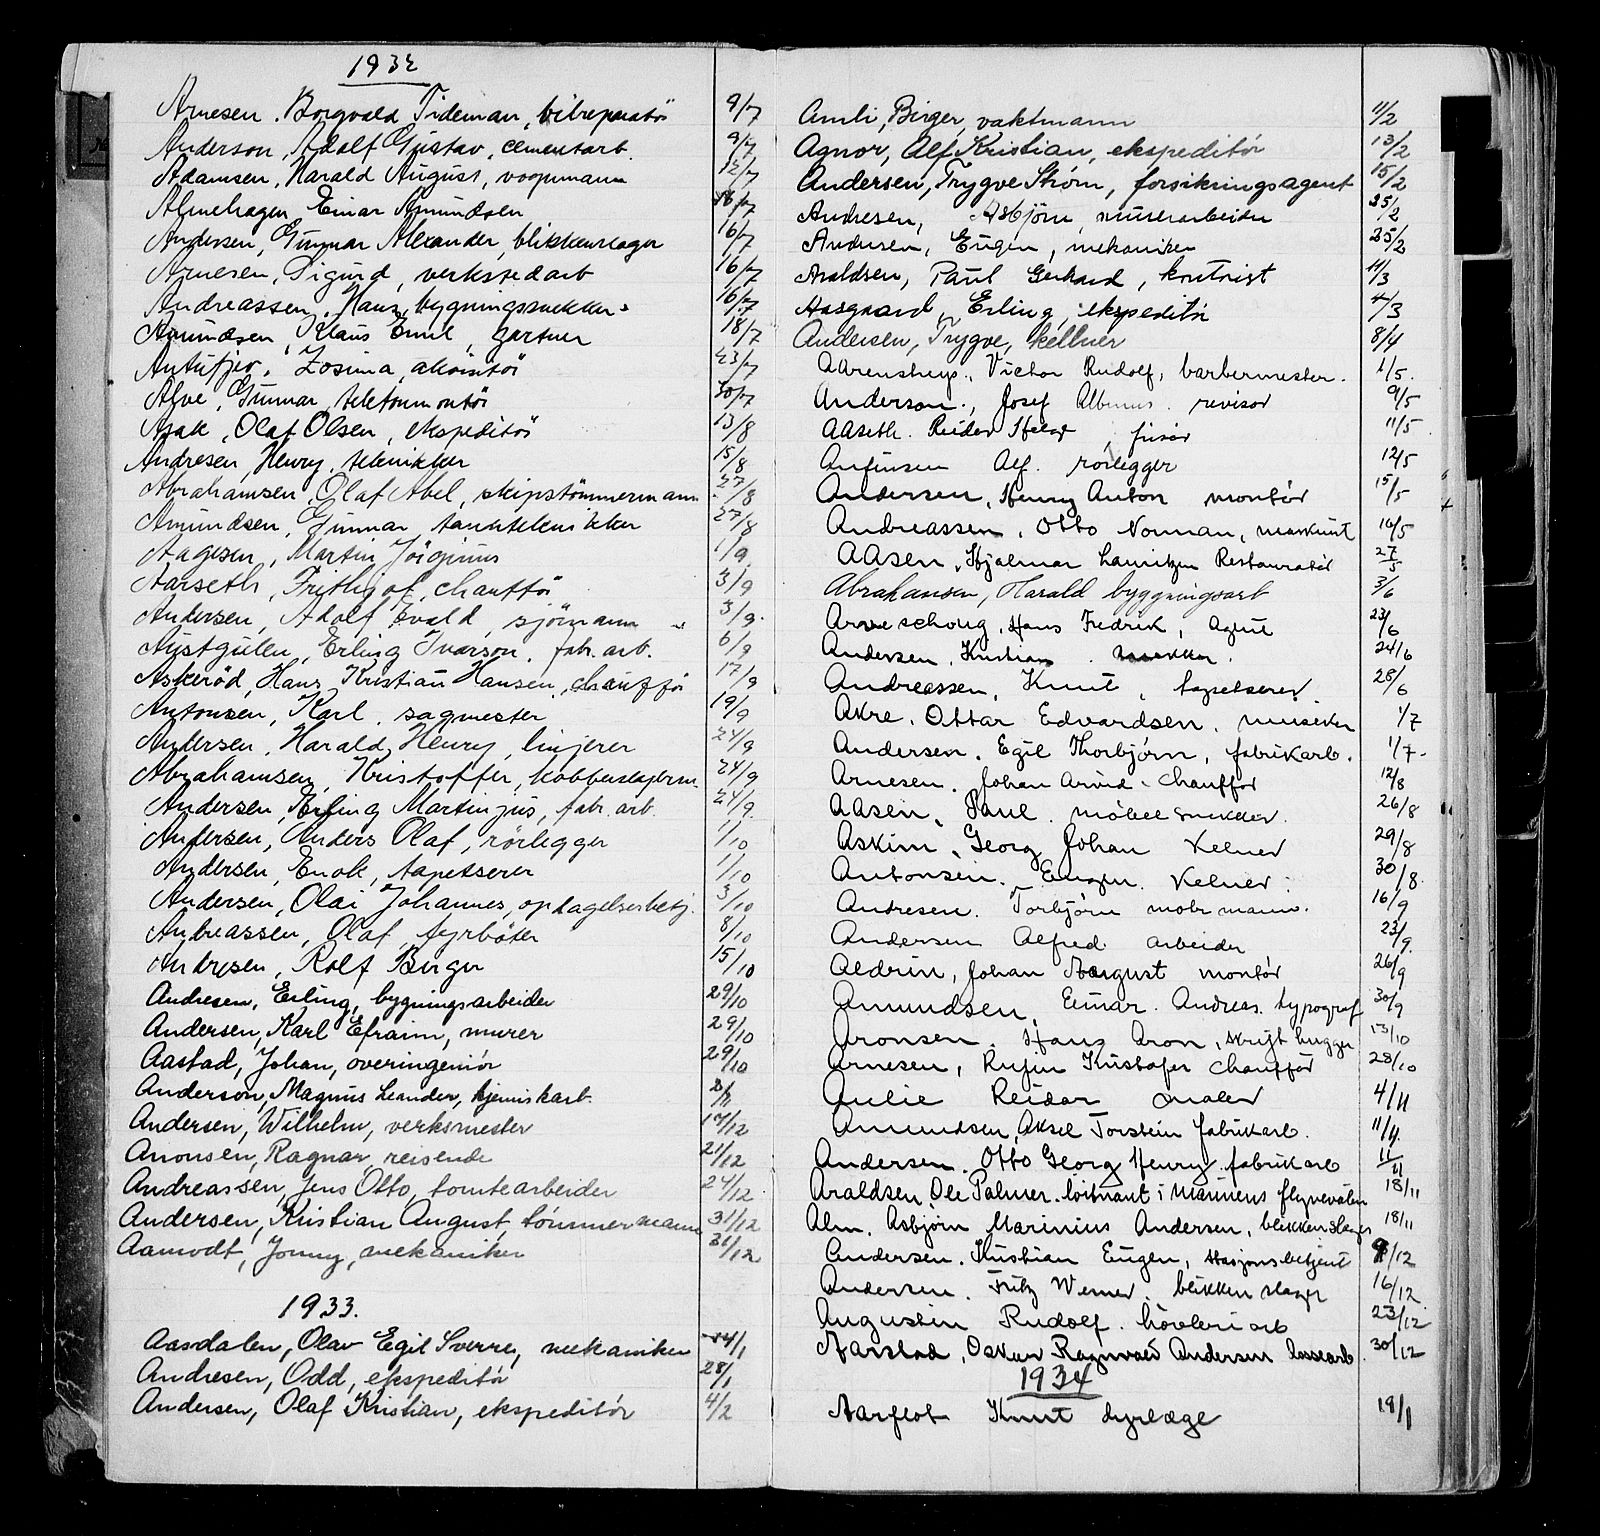 1932
Arnesen, Borgvald Tideman, bilreparatör 9/7
Anderson, Adolf Gustav, cementarb. 9/7
Adamsen, Harald August, vognmann 12/7
Almehagen, Einar Amundsen 16/7
Andersen, Gunnar Alexander, blikkenslager 16/7
Arnesen, Sigurd, verkstedarb 16/7
Andreassen, Hans, bygningssnekker 16/7
Amundsen, Klaus Emil, gartner 18/7
Zosima, 23/7
Alve, Gunnar, telefonmontör 30/7
Asak, Olaf Olsen, ekspeditör 13/8
Andresen, Henry, tekniker 15/8
Abrahamsen, Olaf Abel, skipstömmermann 27/8
Amundsen, Gunnar, tanntekniker 27/8
Aagesen, Martin Jörginus 1/9
Aarseth, Frithjof, chaufför 3/9
Andersen, Adolf Evald, sjömann 3/9
Austgulen, Erling Ivarson, fabr. arb. 6/9
Askeröd, Hans Kristian Hansen, chaufför 17/9
Antonsen, Karl, sagmester 19/9
Andersen, Harald Henry, linjerer 24/9
Abrahamsen, Kristoffer, kobberslagerm. 24/9
Andersen, Erling Martinjus, fabr. arb. 24/9
Andersen, Anders Olaf, rörlegger 1/10
Andersen, Enok, tapetserer 1/10
Andersen, Olai Johannes, opdagelsesbetj. 3/10
Andreassen, Olaf, fyrböter 8/10
Andresen, Rolf Birger 15/10
Andresen, Erling, bygningsarbeider 29/10
Andersen, Karl Efraim, murer 29/10
Aastad, Johan, overingeniör 29/10
Anderson, Magnus Leander, kjemiskarb.
Andersen, Wilhelm, verksmester 17/12
Aronsen, Ragnar, reisende 21/12
Andreassen, Jens Otto, tomtearbeider 24/12
Andersen, Kristian August, tömmermann 31/12
Aamodt, Jonny, mekaniker 31/12
1933.
Aasdalen, Olav Egil Sverre, mekaniker 14/1
Andresen, Odd, ekspeditör 28/1
Andersen, Olaf Kristian, ekspeditör 4/2
Amli, Birger, vaktmann 11/2
Agnor, Alf Kristian, ekspeditör 13/2
Andersen, Trygve Strøm, forsikringsagent 15/2
Andresen, Asbjörn, murerarbeider 25/2
Andersen, Eugen, mekaniker 25/2
Araldsen, Paul Gerhard, kontorist 11/3
Aasgaard, Erling, ekspeditör 4/3
Andersen, Trygve, kellner 8/4
Aarenstrup, Victor Rudolf, barbermester. 1/5.
Anderson, Josef Albinus. revisor 9/5
Aaseth. Reidar frisør 11/5
Anfinsen Alf. rörlegger 12/5
Andersen, Henry Anton montör 15/5
Andreassen, Otto Norman, maskinist 16/5
Aasen, Hjalmar Lauritzen Restauratör 27/5
Abrahamsen, Harald byggningsarb 3/6
Arneschoug, Hans Fredrik, Agent 23/6
Andersen, Kristian. snekker. 24/6
Andreassen, Knut, tapetserer 28/6
Akre, Ottar Edvardsen, musiker 1/7
Andersen, Egil Thorbjørn, fabrikarb. 1/7
Arnesen, Johan Arvid, Chauffør 12/8
Aasen, Paul. möbelsnekker. 26/8
Askim, Georg Johan Kelner 29/8
Antonsen. Eugen. Kelner. 30/8.
Andresen. Torbjørn 16/9
Andersen Alfred arbeider 23/9.
Aldrin, Johan August montør 26/9
Amundsen, Einar. Andreas. typograf 30/9
Aronsen. Hans Aron, skrifthugger 13/10
Arnesen, Kristofer Chauffør 28/10
Aulie Reidar maler 4/11
Amundsen, Aksel Torstein fabrikarb. 11/11.
Andersen. Otto Georg Henry. fabrikarb 11/11
Araldsen Ole Palmer. löitnant i Marinens flyvevåben 18/11
Alm. Asbjørn Marinius Andersen, blikkenslager 18/11
Andersen. Kristian Eugen, stasjonsbetjent 9/12
Andersen. Fritz Werner. blikkenslager 16/12
Augustin Rudolf. hövleriarb 23/12
Aarstad, Oskar Ragnvald Andersen lossearb. 30/12
1934
Aarflot Knut dyrlæge 18/1